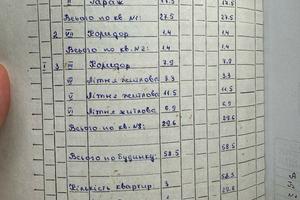 II Гараж 27.5 27.5
Всього по кв №1: 27.5 27.5
2 VI Коридор 1.4 1.4
Всього по кв. №2: 1.4 1.4
I 3 Коридор 7.9 7.9
Літня 3.3 3.3
Літня 11.5 11.5
Літня житлова 6.9 6.9
Всього по кв. №3: 29.6 29.6
Всього по будинку: 58.5 58.5
58.5
Кількість квартир: 3